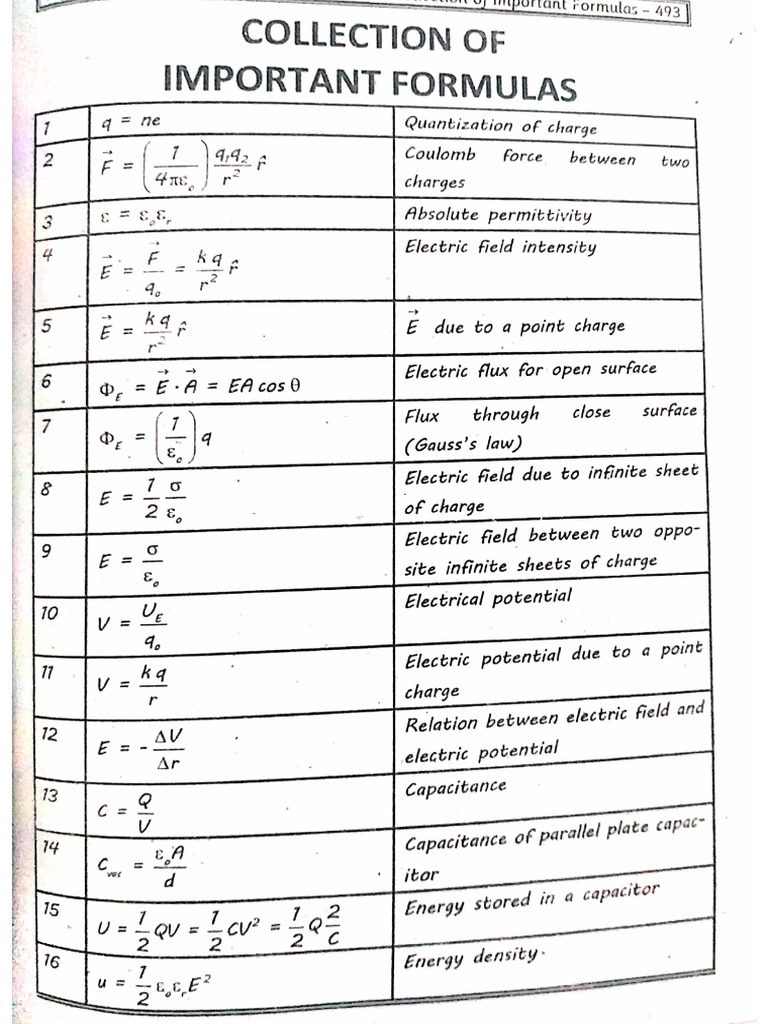 of Important Formulas – 493
COLLECTION OF
IMPORTANT FORMULAS
1 q = ne Quantization of charge
2 F⃗ = (1/4πε₀) q₁q₂/r² r̂ Coulomb force between two
charges
3 ε = ε₀εᵣ Absolute permittivity
4 E⃗ = F⃗/q₀ = kq/r² r̂ Electric field intensity
5 E⃗ = kq/r² r̂ E⃗ due to a point charge
6 Φ_E = E⃗ · A⃗ = EA cos θ Electric flux for open surface
7 Φ_E = (1/ε₀) q Flux through close surface
(Gauss's law)
8 E = 1/2 σ/ε₀ Electric field due to infinite sheet
of charge
9 E = σ/ε₀ Electric field between two oppo-
site infinite sheets of charge
10 V = U_E/q₀ Electrical potential
11 V = kq/r Electric potential due to a point
charge
12 E = - ΔV/Δr Relation between electric field and
electric potential
13 C = Q/V Capacitance
14 C_vac = ε₀A/d Capacitance of parallel plate capac-
itor
15 U = 1/2 QV = 1/2 CV² = 1/2 Q 2/C Energy stored in a capacitor
16 u = 1/2 ε₀εᵣE² Energy density.